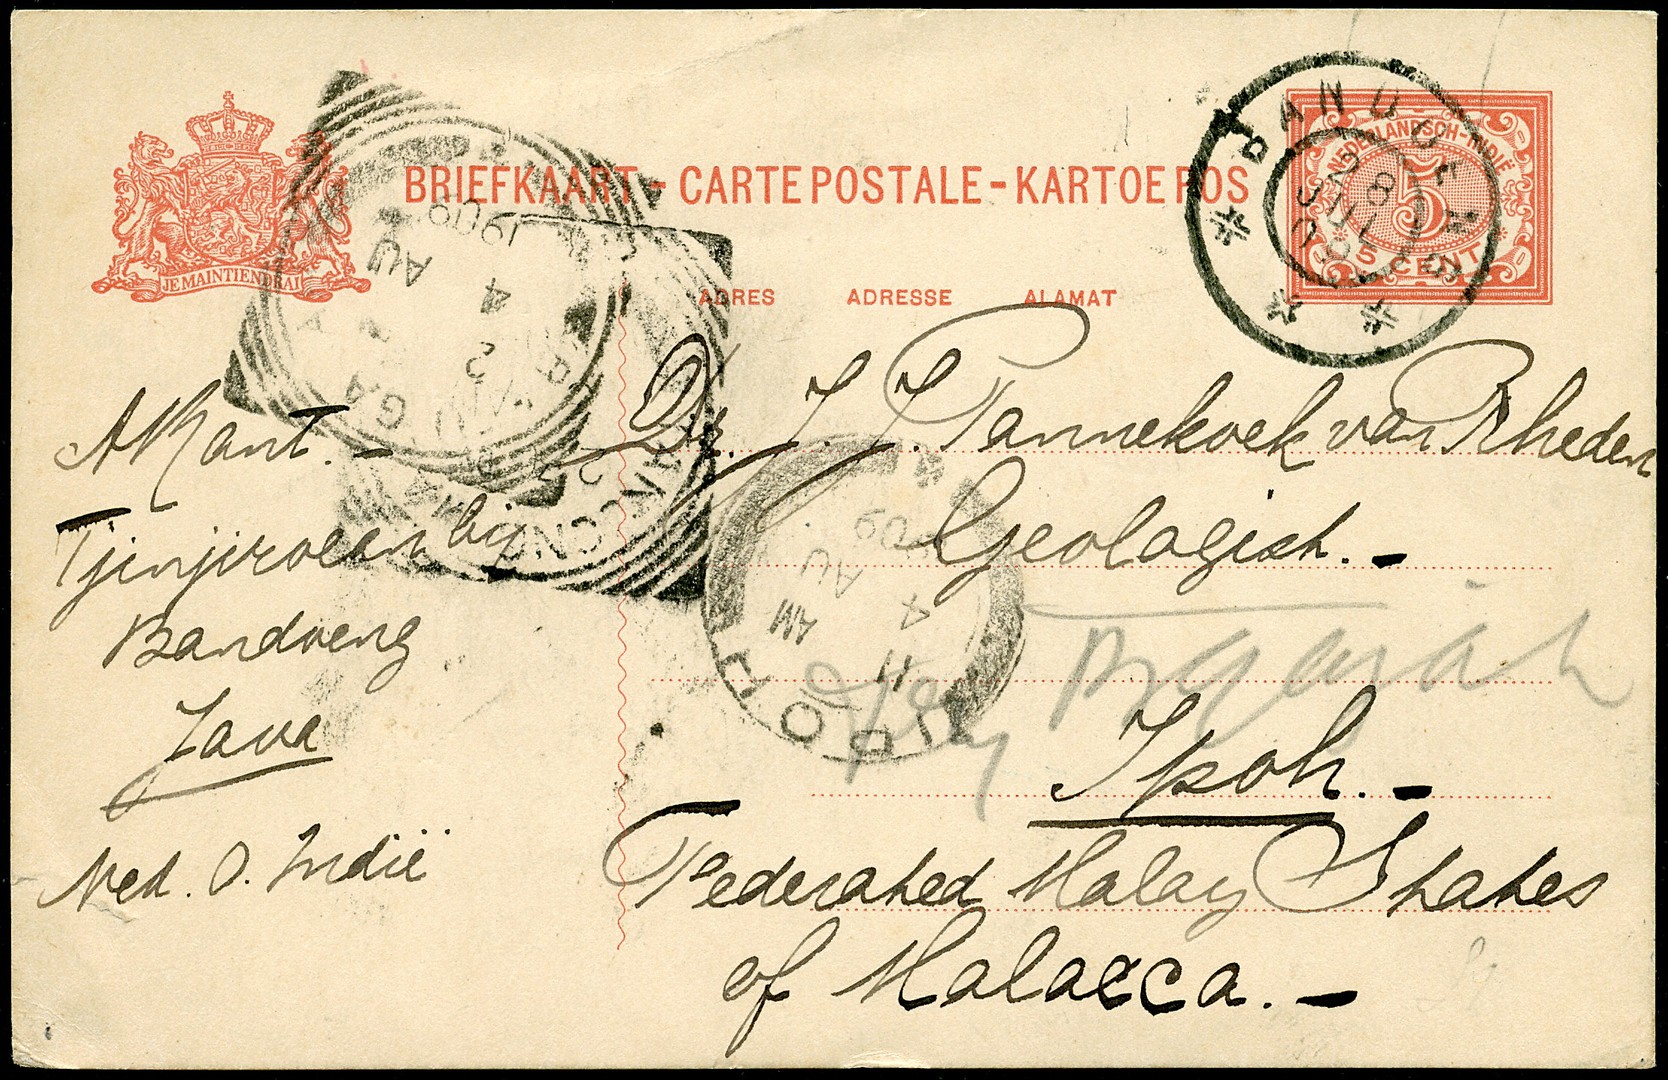 BRIEFKAART - CARTE POSTALE - KARTOE POS
JE MAINTIENDRAI
NEDERLANDSCH-INDIË
5
5 CENT
BANDOENG
28
JUL
09
ADRES ADRESSE ALAMAT
4
AU
1909
PINANG
AM
11
4
AU
09
IPOH
Dr. J. J. Pannekoek van Rheden
Geologist. -
Ipoh. -
Federated Malay States
of Malacca. -
A Kant. -
Tjinjiroean bij
Bandoeng
Java
Ned. O. Indië